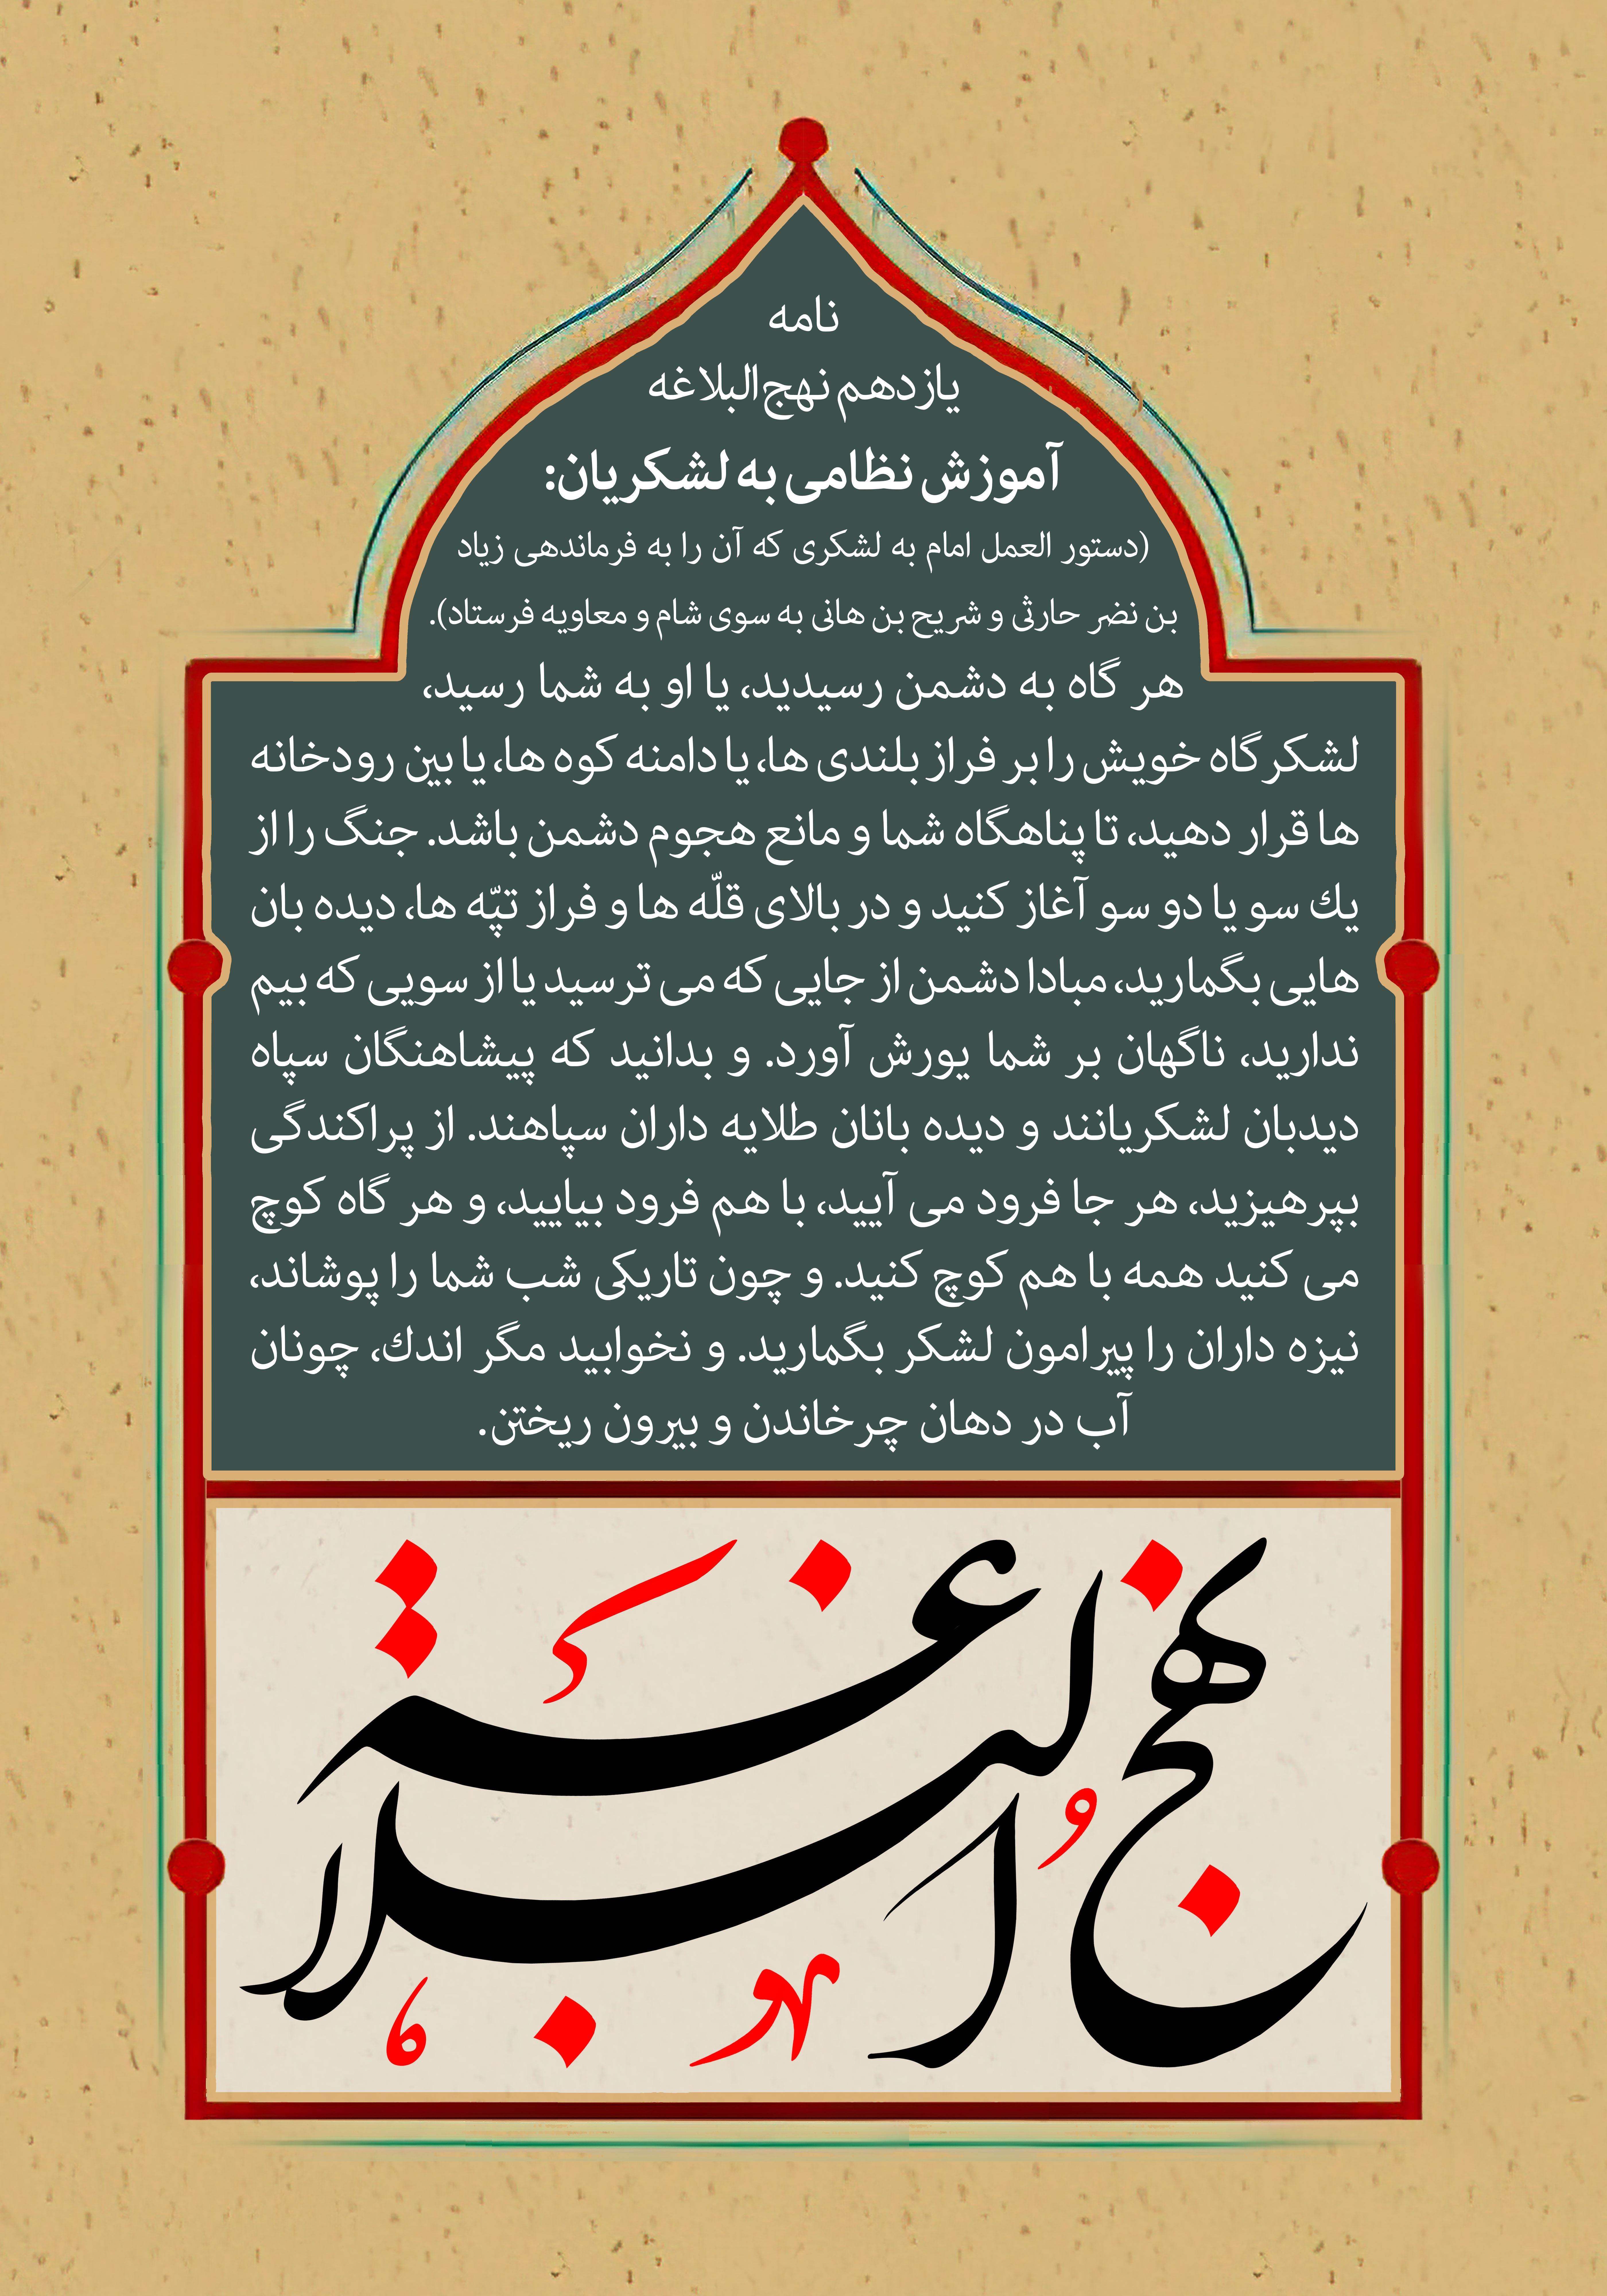 نامه
یازدهم نهج‌البلاغه
آموزش نظامی به لشکریان:
(دستور العمل امام به لشکری که آن را به فرماندهی زیاد
بن نضر حارثی و شریح بن هانی به سوی شام و معاویه فرستاد).
هر گاه به دشمن رسیدید، یا او به شما رسید،
لشکرگاه خویش را بر فراز بلندی ها، یا دامنه کوه ها، یا بین رودخانه
ها قرار دهید، تا پناهگاه شما و مانع هجوم دشمن باشد. جنگ را از
یك سو یا دو سو آغاز کنید و در بالای قلّه ها و فراز تپّه ها، دیده بان
هایی بگمارید، مبادا دشمن از جایی که می ترسید یا از سویی که بیم
ندارید، ناگهان بر شما یورش آورد. و بدانید که پیشاهنگان سپاه
دیدبان لشکریانند و دیده بانان طلایه داران سپاهند. از پراکندگی
بپرهیزید، هر جا فرود می آیید، با هم فرود بیایید، و هر گاه کوچ
می کنید همه با هم کوچ کنید. و چون تاریکی شب شما را پوشاند،
نیزه داران را پیرامون لشکر بگمارید. و نخوابید مگر اندك، چونان
آب در دهان چرخاندن و بیرون ریختن.
نهج البلاغة